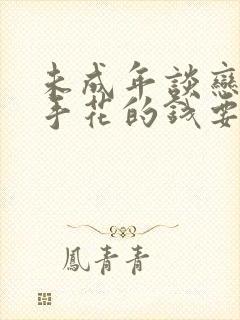 未成年談戀
手花的錢要
鳳青青